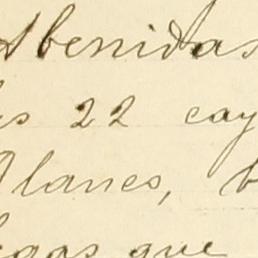 Abenidas
as 22 cay
Planes, b
egas que